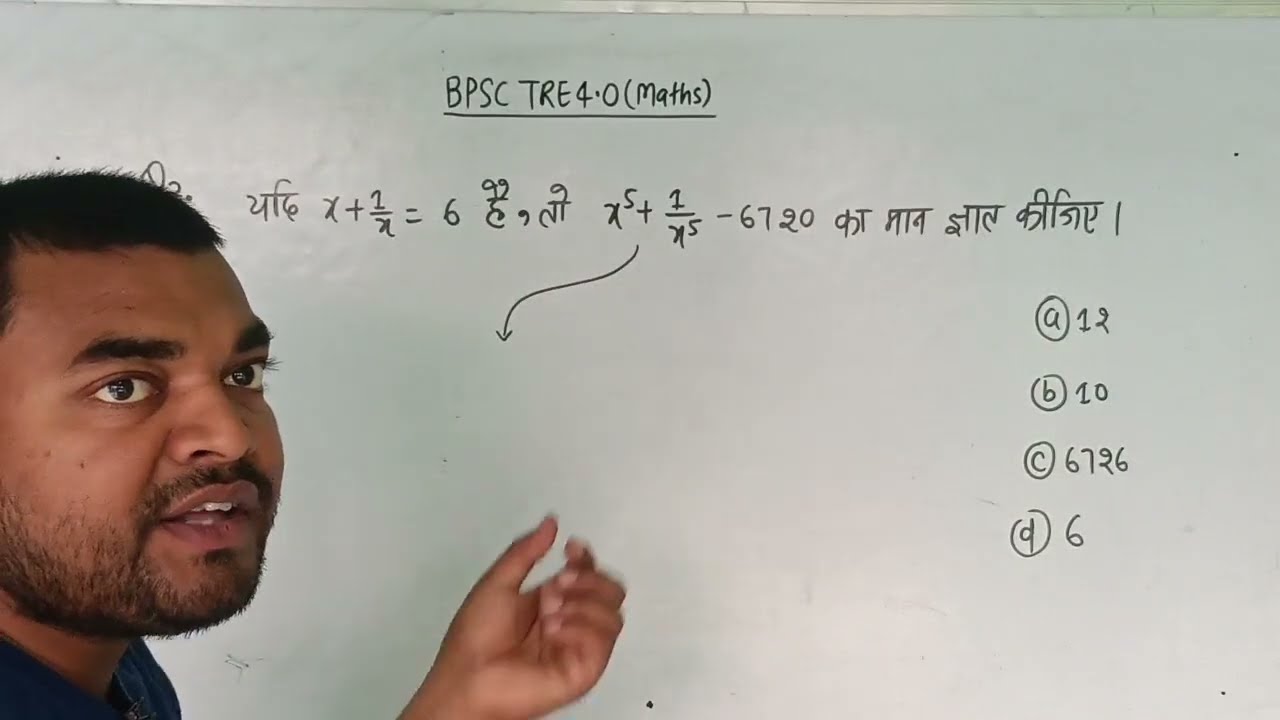 BPSC TRE 4.0 (Maths)
यदि x + 1/x = 6 है, तो x⁵ + 1/x⁵ - 6720 का मान ज्ञात कीजिए।
ⓐ 12
ⓑ 10
ⓒ 6726
ⓓ 6